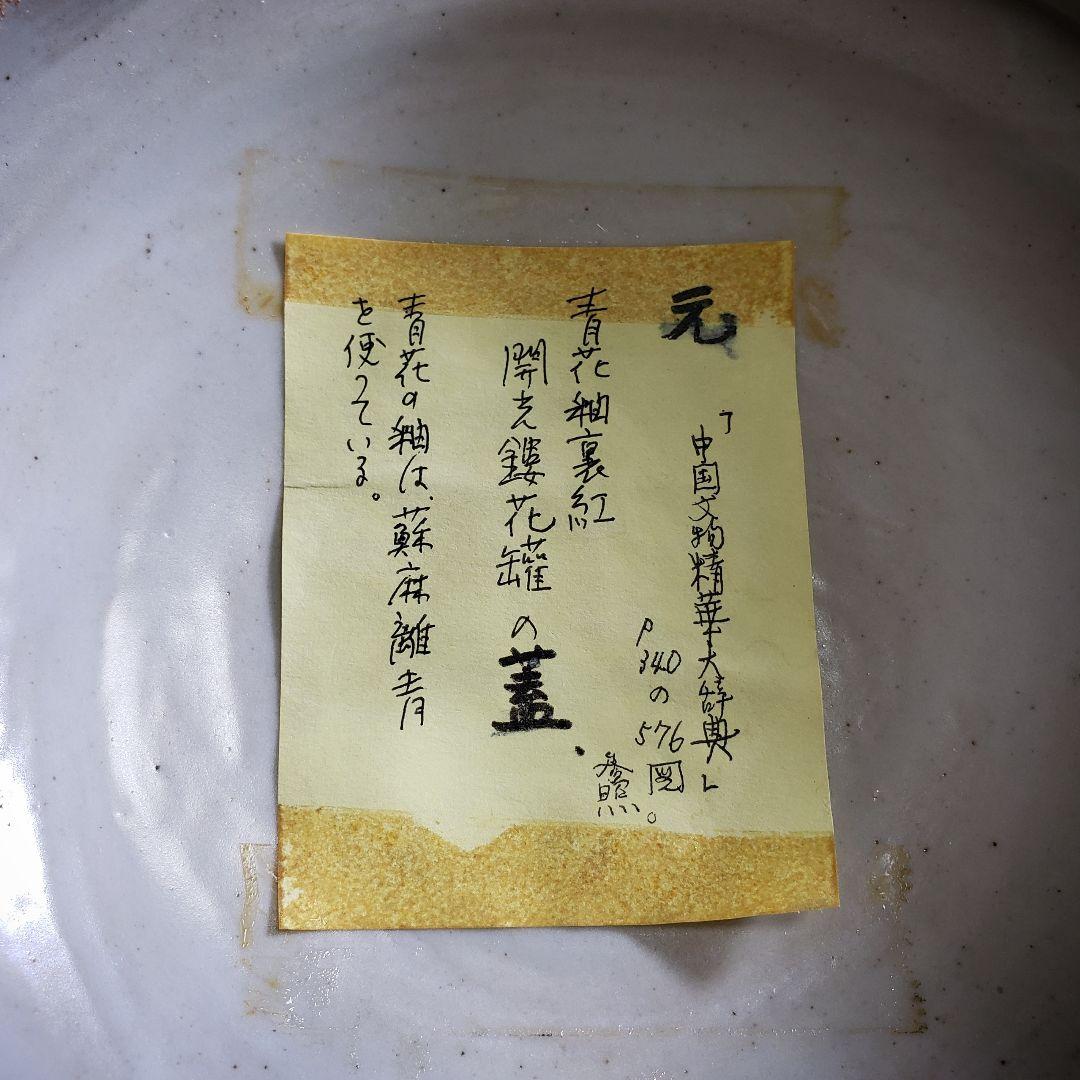 元
「中国文物精華大辞典」
P340の576図。
参照
青花釉裏紅
開光鏤花罐の蓋、
青花の釉は、蘇麻離青
を使っている。